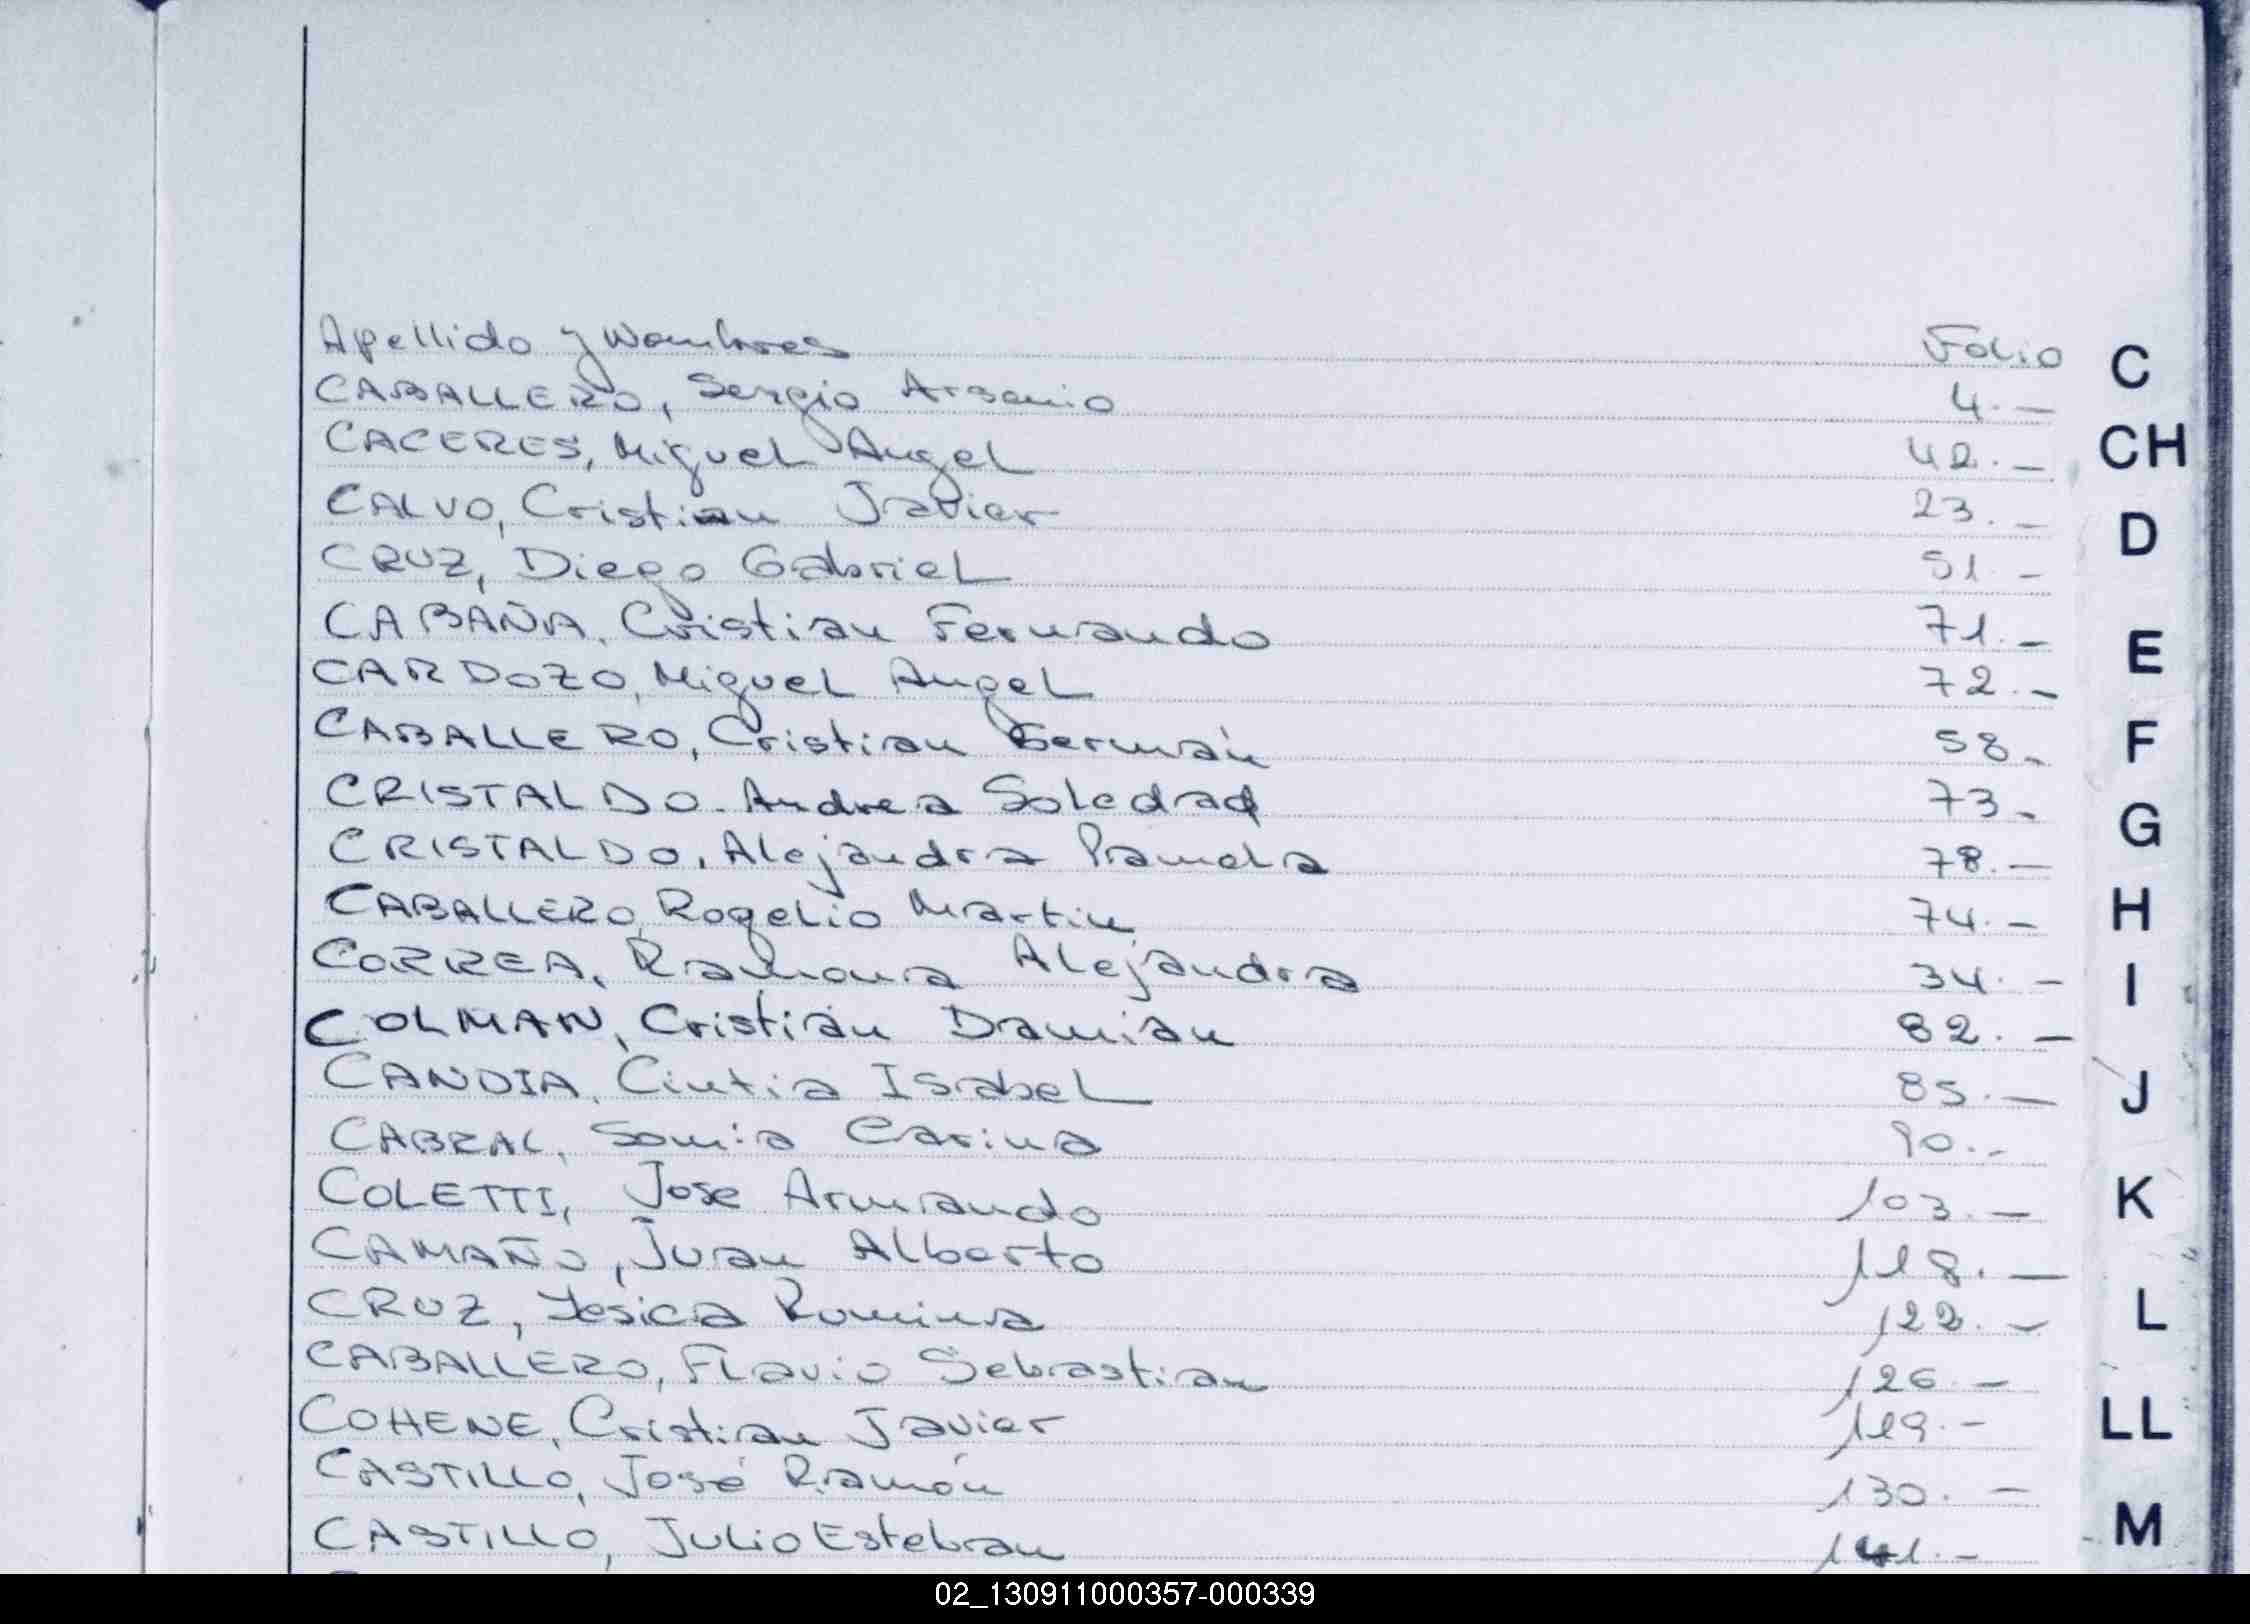 Apellido y Nombres Folio
CABALLERO, Sergio Arsenio 4.-
CACERES, Miguel Angel 42.-
CALVO, Cristian Javier 23.-
CRUZ, Diego Gabriel 51.-
CABAÑA, Cristian Fernando 71.-
CARDOZO, Miguel Angel 72.-
CABALLERO, Cristian Germán 58.-
CRISTALDO. Andrea Soledad 73.-
CRISTALDO, Alejandra Pamela 78.-
CABALLERO, Rogelio Martin 74.-
CORREA, Ramona Alejandra 34.-
COLMAN, Cristián Damián 82.-
CANDIA, Cintia Isabel 85.-
CABRAL, Sonia Carina 90.-
COLETTI, Jose Armando 103.-
CAMAÑO, Juan Alberto 118.-
CRUZ, Yesica Romina 122.-
CABALLERO, Flavio Sebastian 126.-
COHENE, Cristian Javier 119.-
CASTILLO, José Ramón 130.-
CASTILLO, Julio Esteban 141.-
C
CH
D
E
F
G
H
I
J
K
L
LL
M
02_130911000357-000339